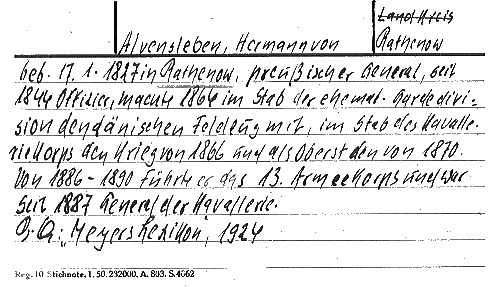 Land Kreis
Alvensleben, Hermann von Rathenow
geb. 17. 1. 1827 in Rathenow, preußischer General, seit
1844 Offizier, machte 1864 im Stab der ehemal. Gardedivi-
sion den dänischen Feldzug mit, im Stab des Kavalle-
riekorps den Krieg von 1866 und als Oberst den von 1870.
Von 1886 - 1890 führte er das 13. Armeekorps und war
seit 1887 General der Kavallerie.
B.A.: "Meyers Lexikon", 1924
Reg. 10 Stichnote. I. 50. 232000. A. 803. S. 4662